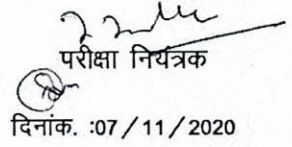 परीक्षा नियंत्रक
दिनांक. :07/11/2020